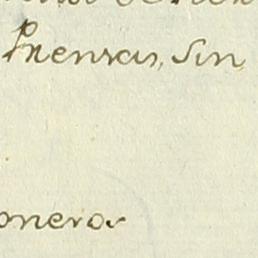 Prensas, sin
oneros